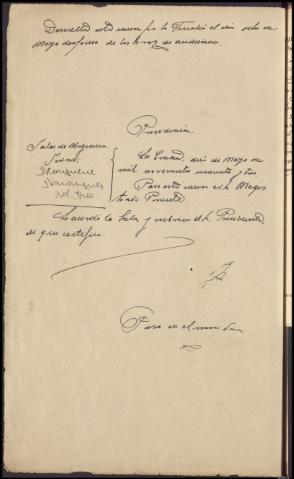 Devuelto esta causa por la Fiscalía el día ocho de
Mayo despues de las horas de audiencia.
Providencia.
Salas de Urgencia.
Señores:
del Río
La Coruña, diez de Mayo de
mil novecientos cuarenta y dos.
Pase esta causa al Magis
trado Ponente.
Lo acordó la Sala y rubrica el S. Presidente,
de que certifico.
Pasa en el mismo día